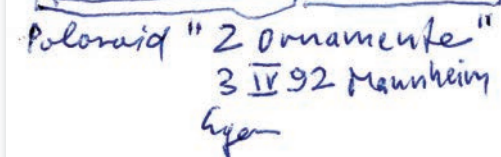 Polaroid "2 Ornamente"
3 IV 92 Mannheim